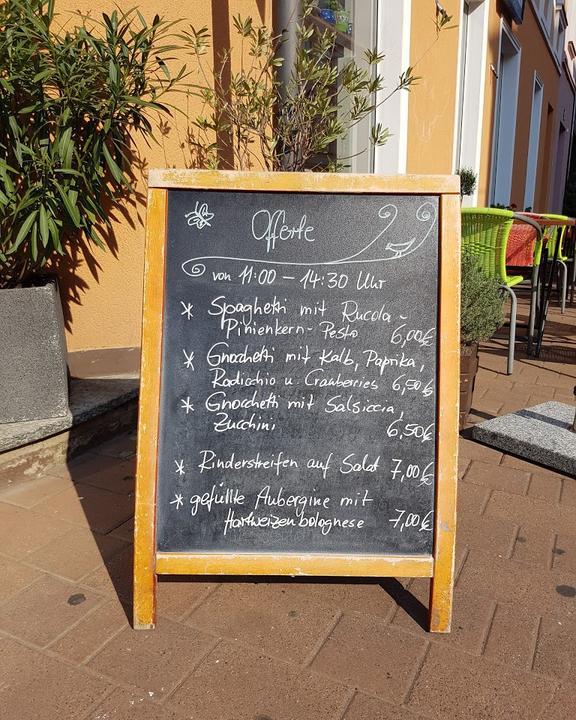 Offerte
von 11:00 - 14:30 Uhr
* Spaghetti mit Rucola -
Pinienkern- Pesto 6,00€
* Gnocchetti mit Kalb, Paprika,
Radicchio u. Cranberries 6,50€
* Gnocchetti mit Salsiccia,
Zucchini 6,50€
* Rinderstreifen auf Salat 7,00€
* gefüllte Aubergine mit
Hartweizenbolognese 7,00€